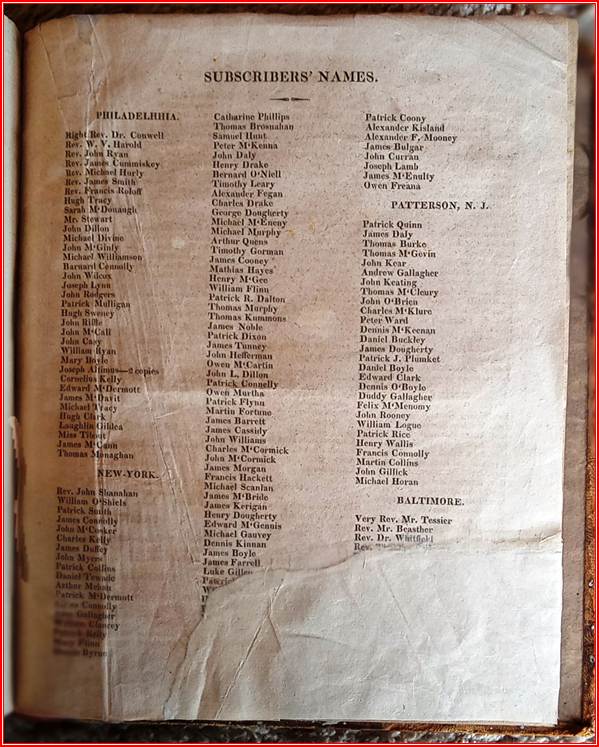 SUBSCRIBERS' NAMES.
PHILADELHHIA.
Right Rev. Dr. Conwell
Rev. W. V. Harold
Rev. John Ryan
Rev. James Cummiskey
Rev. Michael Hurly
Rev. James Smith
Rev. Francis Roloff
Hugh Tracy
Sarah M'Donaugh
Mr. Stewart
John Dillon
Michael Divine
John M'Ginly
Michael Williamson
Barnard Connolly
John Wilcox
Joseph Lynn
John Rodgers
Patrick Mulligan
Hugh Sweney
John Riffle
John M'Call
John Casy
William Ryan
Mary Boyle
Joseph Altimus—2 copies
Cornelius Kelly
Edward M'Dermott
James M'Davit
Michael Tracy
Hugh Clark
Laughlin Gildea
Miss
James M'Cann
Thomas Monaghan
NEW-YORK.
Rev. John Shanahan
William O'Shiels
Patrick Smith
James Connolly
John M'Cosker
Charles Kelly
James Duffey
John Myers
Patrick Collins
Daniel
Arthur Mehan
Patrick M'Dermott
Connolly
Gallagher
William Clancey
Patrick Reily
Mary Flinn
Byrne
Catharine Phillips
Thomas Brosnahan
Samuel Hunt
Peter M'Kenna
John Daly
Henry Drake
Bernard O'Niell
Timothy Leary
Alexander Fegan
Charles Drake
George Dougherty
Michael M'Eneny
Michael Murphy
Arthur Quens
Timothy Gorman
James Cooney
Mathias Hayes
Henry M'Gee
William Flinn
Patrick R. Dalton
Thomas Murphy
Thomas Kummons
James Noble
Patrick Dixon
James Tunney
John Hefferman
Owen M'Cartin
John L. Dillon
Patrick Connelly
Owen Murtha
Patrick Flynn
Martin Fortune
James Barrett
James Cassidy
John Williams
Charles M'Cormick
John M'Cormick
James Morgan
Francis Hackett
Michael Scanlan
James M'Bride
James Kerigan
Henry Dougherty
Edward M'Gennis
Michael Gauvey
Dennis Kinnan
James Boyle
James Farrell
Luke
Patrick Coony
Alexander Kisland
Alexander F. Mooney
James Bulgar
John Curran
Joseph Lamb
James M'Enulty
Owen Freana
PATTERSON, N. J.
Patrick Quinn
James Daly
Thomas Burke
Thomas M'Gevin
John Kear
Andrew Gallagher
John Keating
Thomas M'Cleury
John O'Brien
Charles M'Klure
Peter Ward
Dennis M'Keenan
Daniel Buckley
James Dougherty
Patrick J. Plumket
Daniel Boyle
Edward Clark
Dennis O'Boyle
Duddy Gallagher
Felix M'Menomy
John Rooney
William Logue
Patrick Rice
Henry Wallis
Francis Connolly
Martin Collins
John Gillick
Michael Horan
BALTIMORE.
Very Rev. Mr. Tessier
Rev. Mr. Beasther
Rev. Dr. Whitfield
Rev.